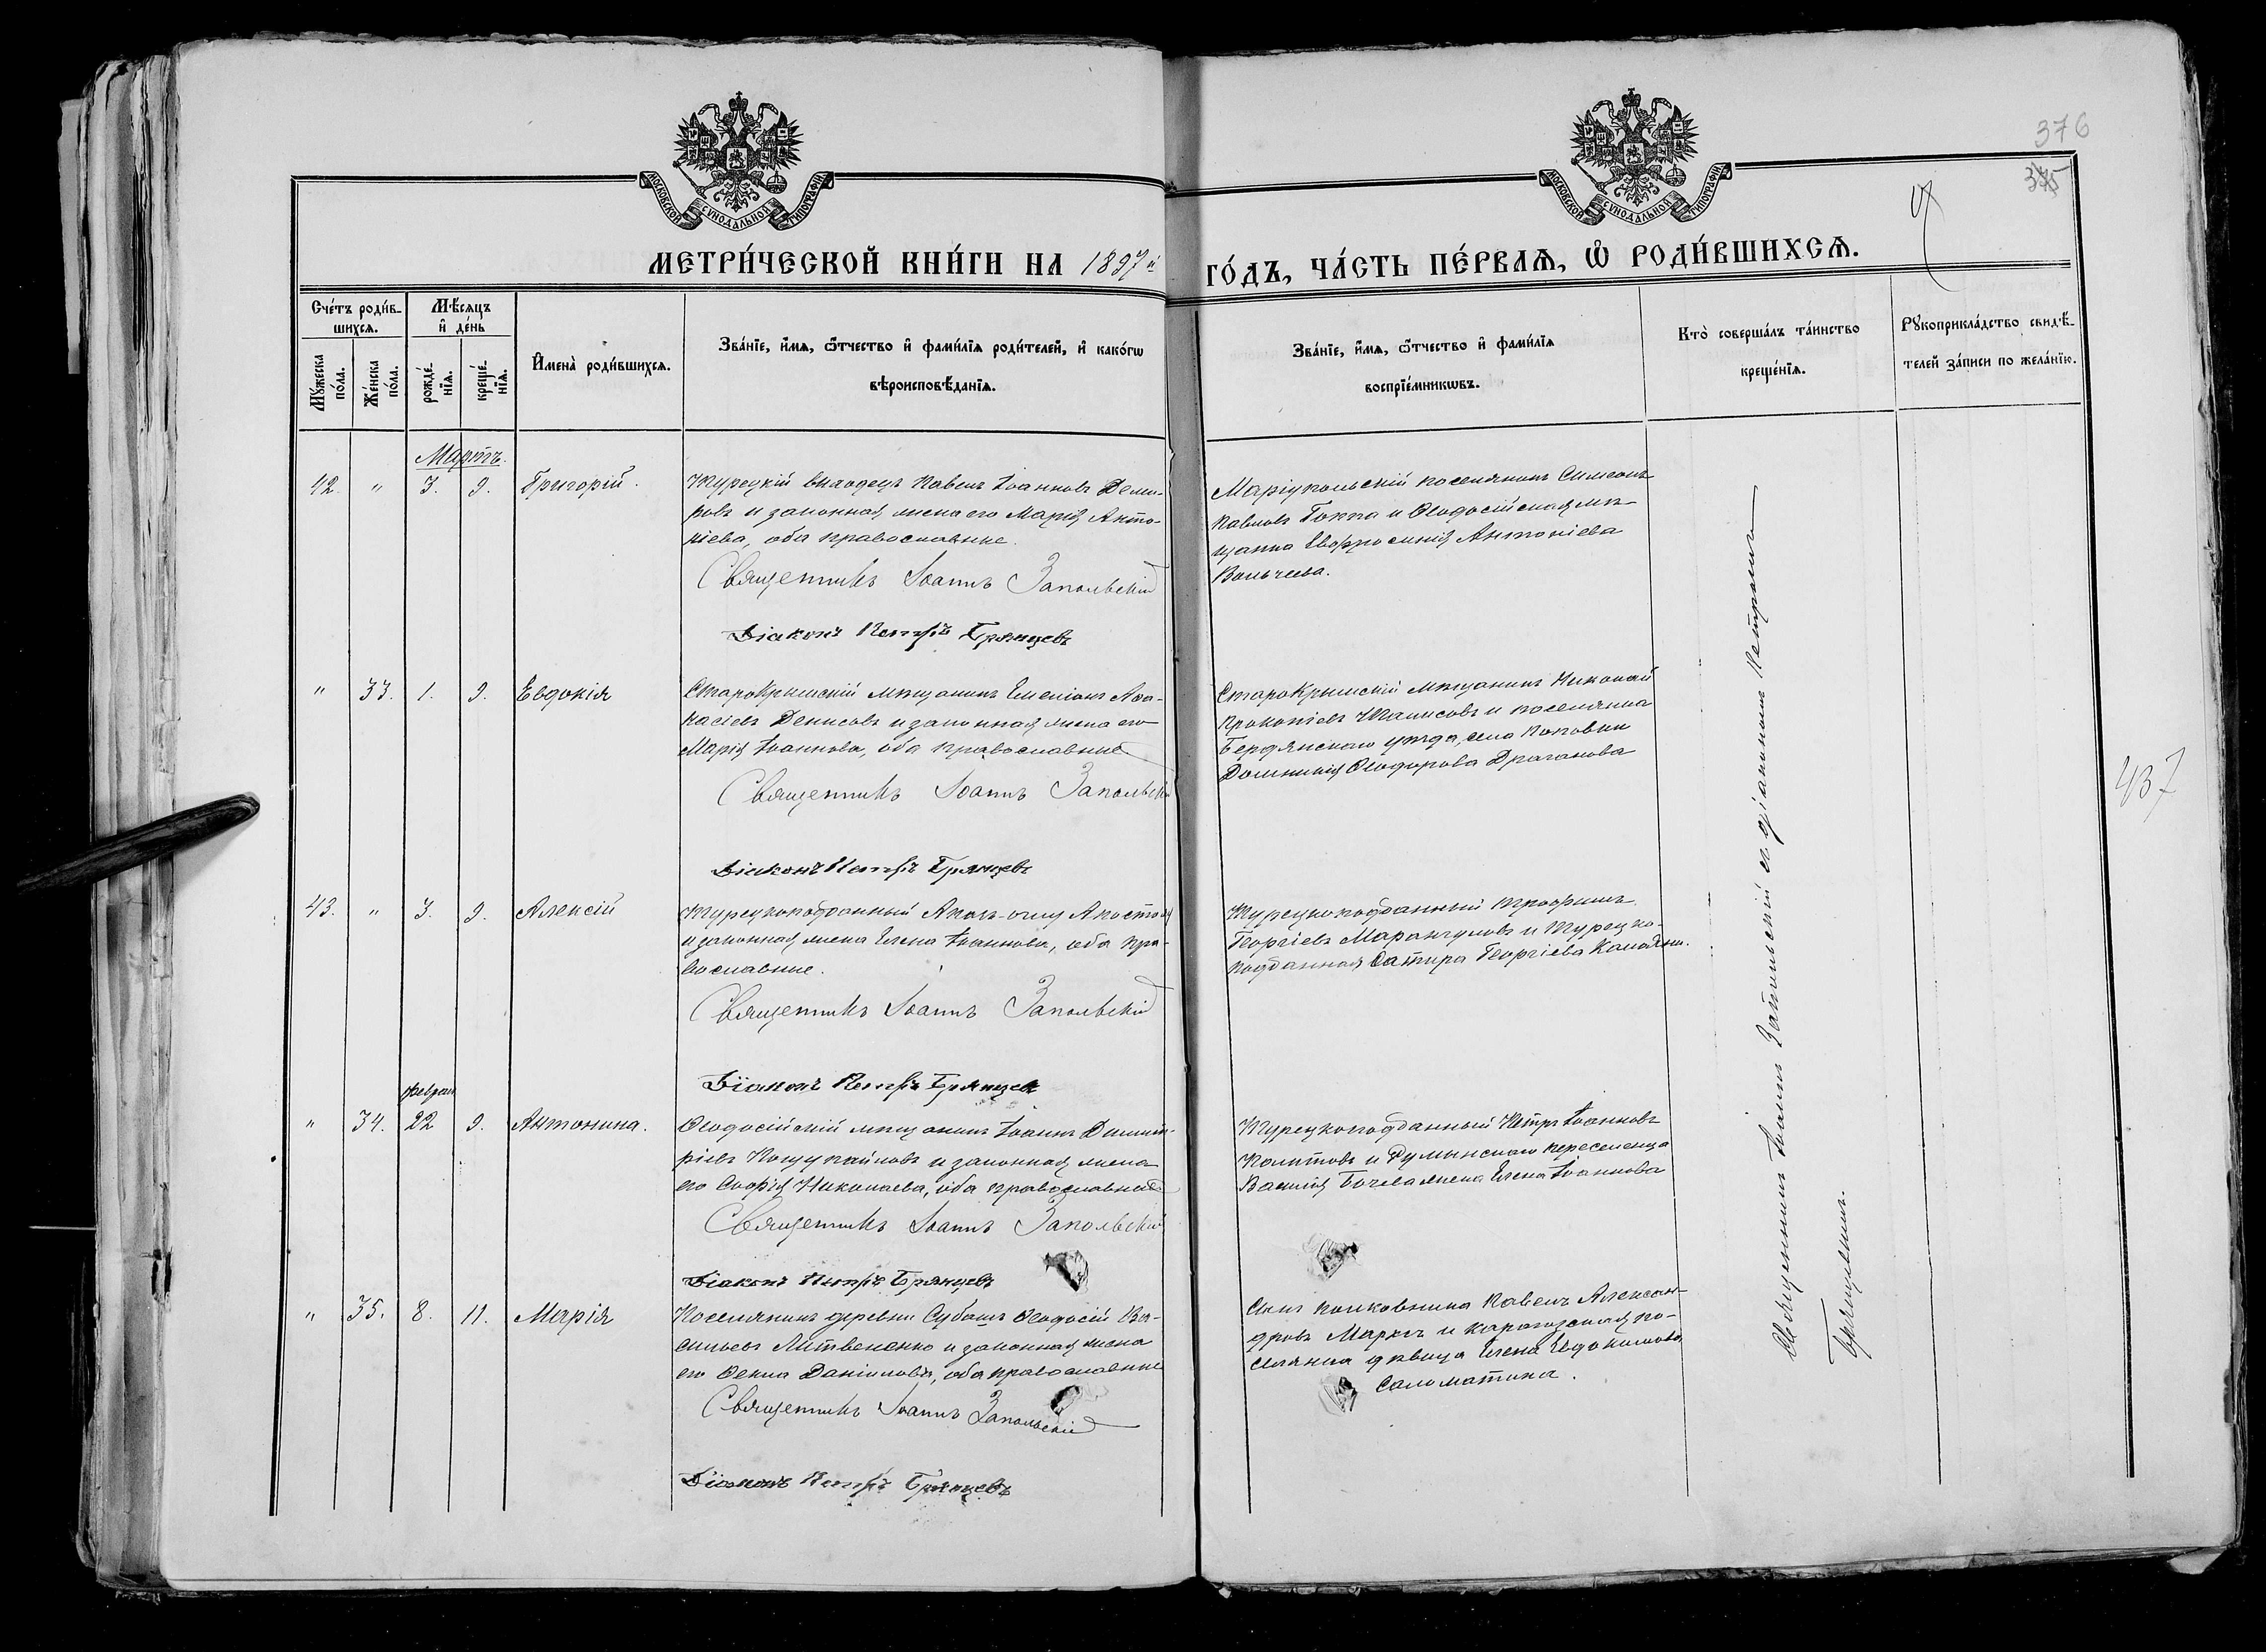 376
375
МОСКОВСКОЙ СУНОДАЛЬНОЙ ТИПОГРАФIИ
МОСКОВСКОЙ СУНОДАЛЬНОЙ ТИПОГРАФIИ
МЕТРИ́ЧЕСКОЙ КНИ́ГИ НА 1897й
ГО́ДЪ, ЧА́СТЬ ПЕ́РВАѦ, Ѡ҆ РОДИ́ВШИХСѦ.
Сче́тъ роди́в-
шихсѧ.
Мꙋжеска по́ла.
Же́нска по́ла.
Мѣ́сѧцъ
и҆ де́нь
рожде́-
нїѧ.
креще́-
нїѧ.
И҆мена̀ роди́вшихсѧ.
Зва́нїе, и҆́мѧ, ѻ҆́тчество и҆ фами́лїѧ роди́телей, и҆ како́гѡ
вѣроисповѣ́данїѧ.
Зва́нїе, и҆́мѧ, ѻ҆́тчество и҆ фами́лїѧ
воспрїе́мникѡвъ.
Кто̀ соверша́лъ та́инство
креще́нїѧ.
Рꙋкоприкла́дство свидѣ́-
телей за́писи по жела́нїю.
Мартъ.
42. " 3. 9. Григорій.
Турецкій выходецъ Павелъ Іоанновъ
и законная жена его Марія Анто-
ніева, оба православные.
Священникъ Іоаннъ Запольскій
Діаконъ Петръ Брянцевъ
Маріупольскій поселянинъ Симеонъ
Павловъ и Ѳеодосійская мѣ-
щанка Евфросинія Антоніева
Вальчева.
" 33. 1. 9. Евдокія
СтароКрымскій мѣщанинъ Емеліанъ Аѳа-
насіевъ Денисовъ и законная жена его
Марія Іоаннова, оба православные
Священникъ Іоаннъ Запольскій
Діаконъ Петръ Брянцевъ
СтароКрымскій мѣщанинъ Николай
Прокопіевъ и поселянка
Бердянскаго уѣзда, села Поповки
Домникія Ѳеодорова Драганова
437
43. " 3. 9. Алексій
Турецкоподданный Апостолъ
и законная жена Елена Іоаннова, оба пра-
вославные.
Священникъ Іоаннъ Запольскій
Діаконъ Петръ Брянцевъ
Турецкоподданный Трофимъ
Георгіевъ Марангузовъ и Турецко-
подданная Сатира Георгіева
феврал
" 34. 22 9. Антонина.
Ѳеодосійскій мѣщанинъ Іоаннъ Димит-
ріевъ и законная жена
его Софія Николаева, оба православные
Священникъ Іоаннъ Запольскій
Діаконъ Петръ Брянцевъ
Турецкоподданный Петръ Іоанновъ
и Румынскаго переселенца
Василія Бочева жена Елена Іоаннова
" 35. 8. 11. Марія
Поселянинъ деревни Субашъ Ѳеодосій Ва-
сильевъ Литвененко и законная жена
его Ѳекла Даніилова, оба православные
Священникъ Іоаннъ Запольскій
Діаконъ Петръ Брянцевъ
Сынъ полковника Павелъ Алексан-
дровъ Марксъ и Карагозская по-
селянка дѣвица Елена Евдокимова
Саломатина.
Священникъ Іоаннъ Запольскій съ діакономъ Петромъ
Брянцевымъ.